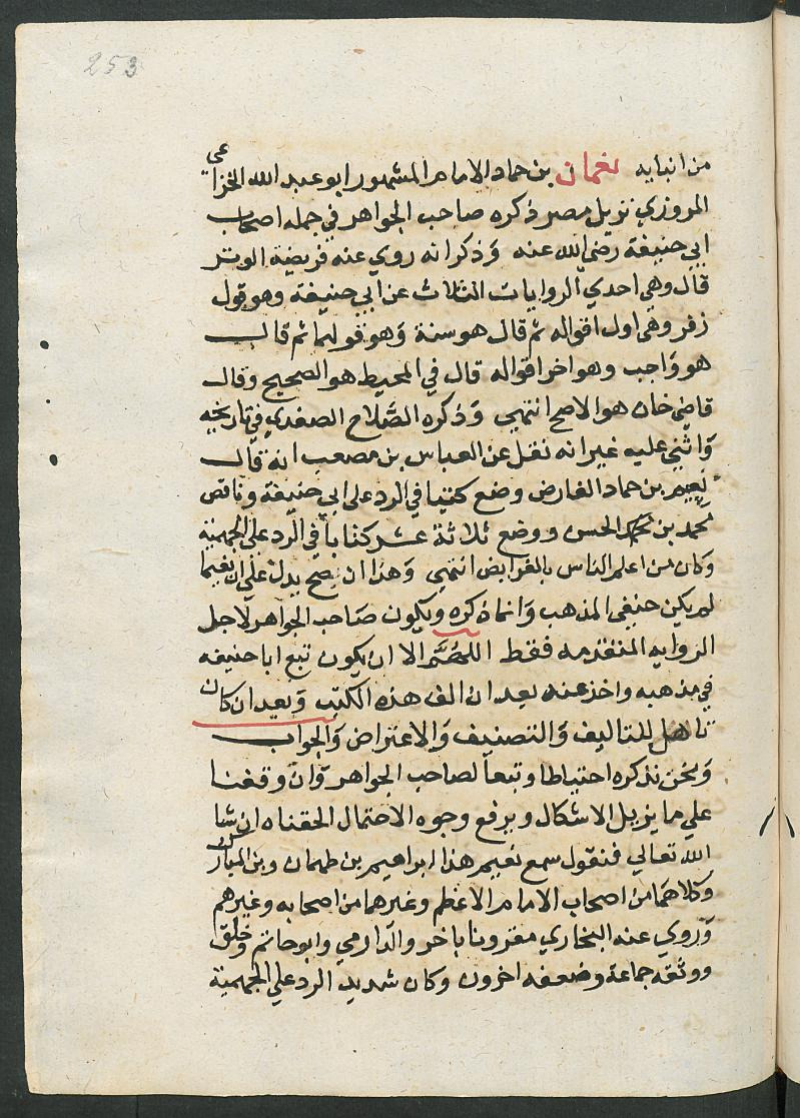 253
من انبايه نعمان بن حماد الامام المشهور ابو عبد الله الخزاعى
المروزي نزيل مصر ذكره صاحب الجواهر في جمله اصحاب
ابي حنيفة رضي الله عنه وَذكر انه روي عنه فريضة الوتر
قال وهي احدي الروايات الثلاث عن ابي حنيفة وهو قول
زفر وهي اول اقواله ثم قال هو سنة وَهو قولهما ثم قال
هو وَاجب وهو اخر اقواله قال في المحيط هو الصحيح وقال
قاضي خان هو الاصح انتهي وَذكره الصَّلاح الصفدي في تاريخه
وَاثني عليه غير انه نقل عن العباس بن مصعب انه قال
نعيم بن حماد الفارض وضع كتبا في الرد علي ابي حنيفة وناقض
محمد بن الحسن ووضع ثلاثة عشر كتاباً في الرد علي الجهمية
وَكان من اعلم الناس بالفرايض انتهي وَهذا ان صح يدل علي ان نعيما
لم يكن حنفي المذهب وَانما ذكره ويكون صَاحب الجواهر لاجل
الروايه المتقدمه فقط اللهُمَّ الا ان يكون تبع ابا حنيفه
في مذهبه واخذ عنه بعد ان الف هذه الكتب وَبعد ان كان
تاهل للتاليف وَالتصنيف وَالاعتراض وَالجواب
وَنحن نذكره احتياطا وتبعاً لصاحب الجواهر وَان وقفنا
علي ما يزيل الاشكال ويرفع وجوه الاحتمال الحقناه ان شا
الله تعالي فنقول سمع نعيم هذا ابراهيم بن طهمان وبن المبارك
وَكلاهمَا من اصحاب الامام الاعظم وغيرهما من اصحابه وغيرهم
وَرَوي عنه البخاري مقرونا باخر والدارمي وابو حاتم وخلق
ووثقه جماعة وضعفه اخرون وكان شديد الرد علي الجهمية